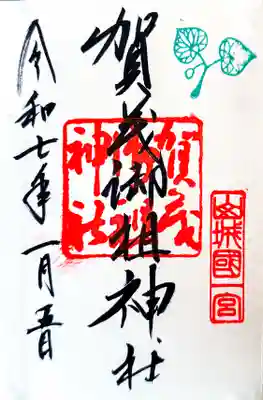 山城國一宮
賀茂御祖神社
賀茂御祖神社
令和七年一月五日